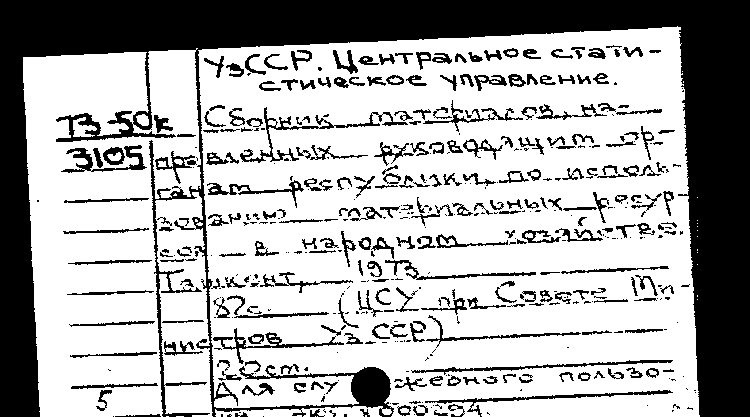 УзССР. Центральное стати-
стическое управление.
73-50к
Сборник материалов, на-
3105
правленных руководящим ор-
ганам республики, по исполь-
зованию материальных ресур-
сов в народном хозяйстве.
Ташкент, 1973
82с. (ЦСУ при Совете Ми-
нистров УзССР)
20см.
Для служебного пользо-
5